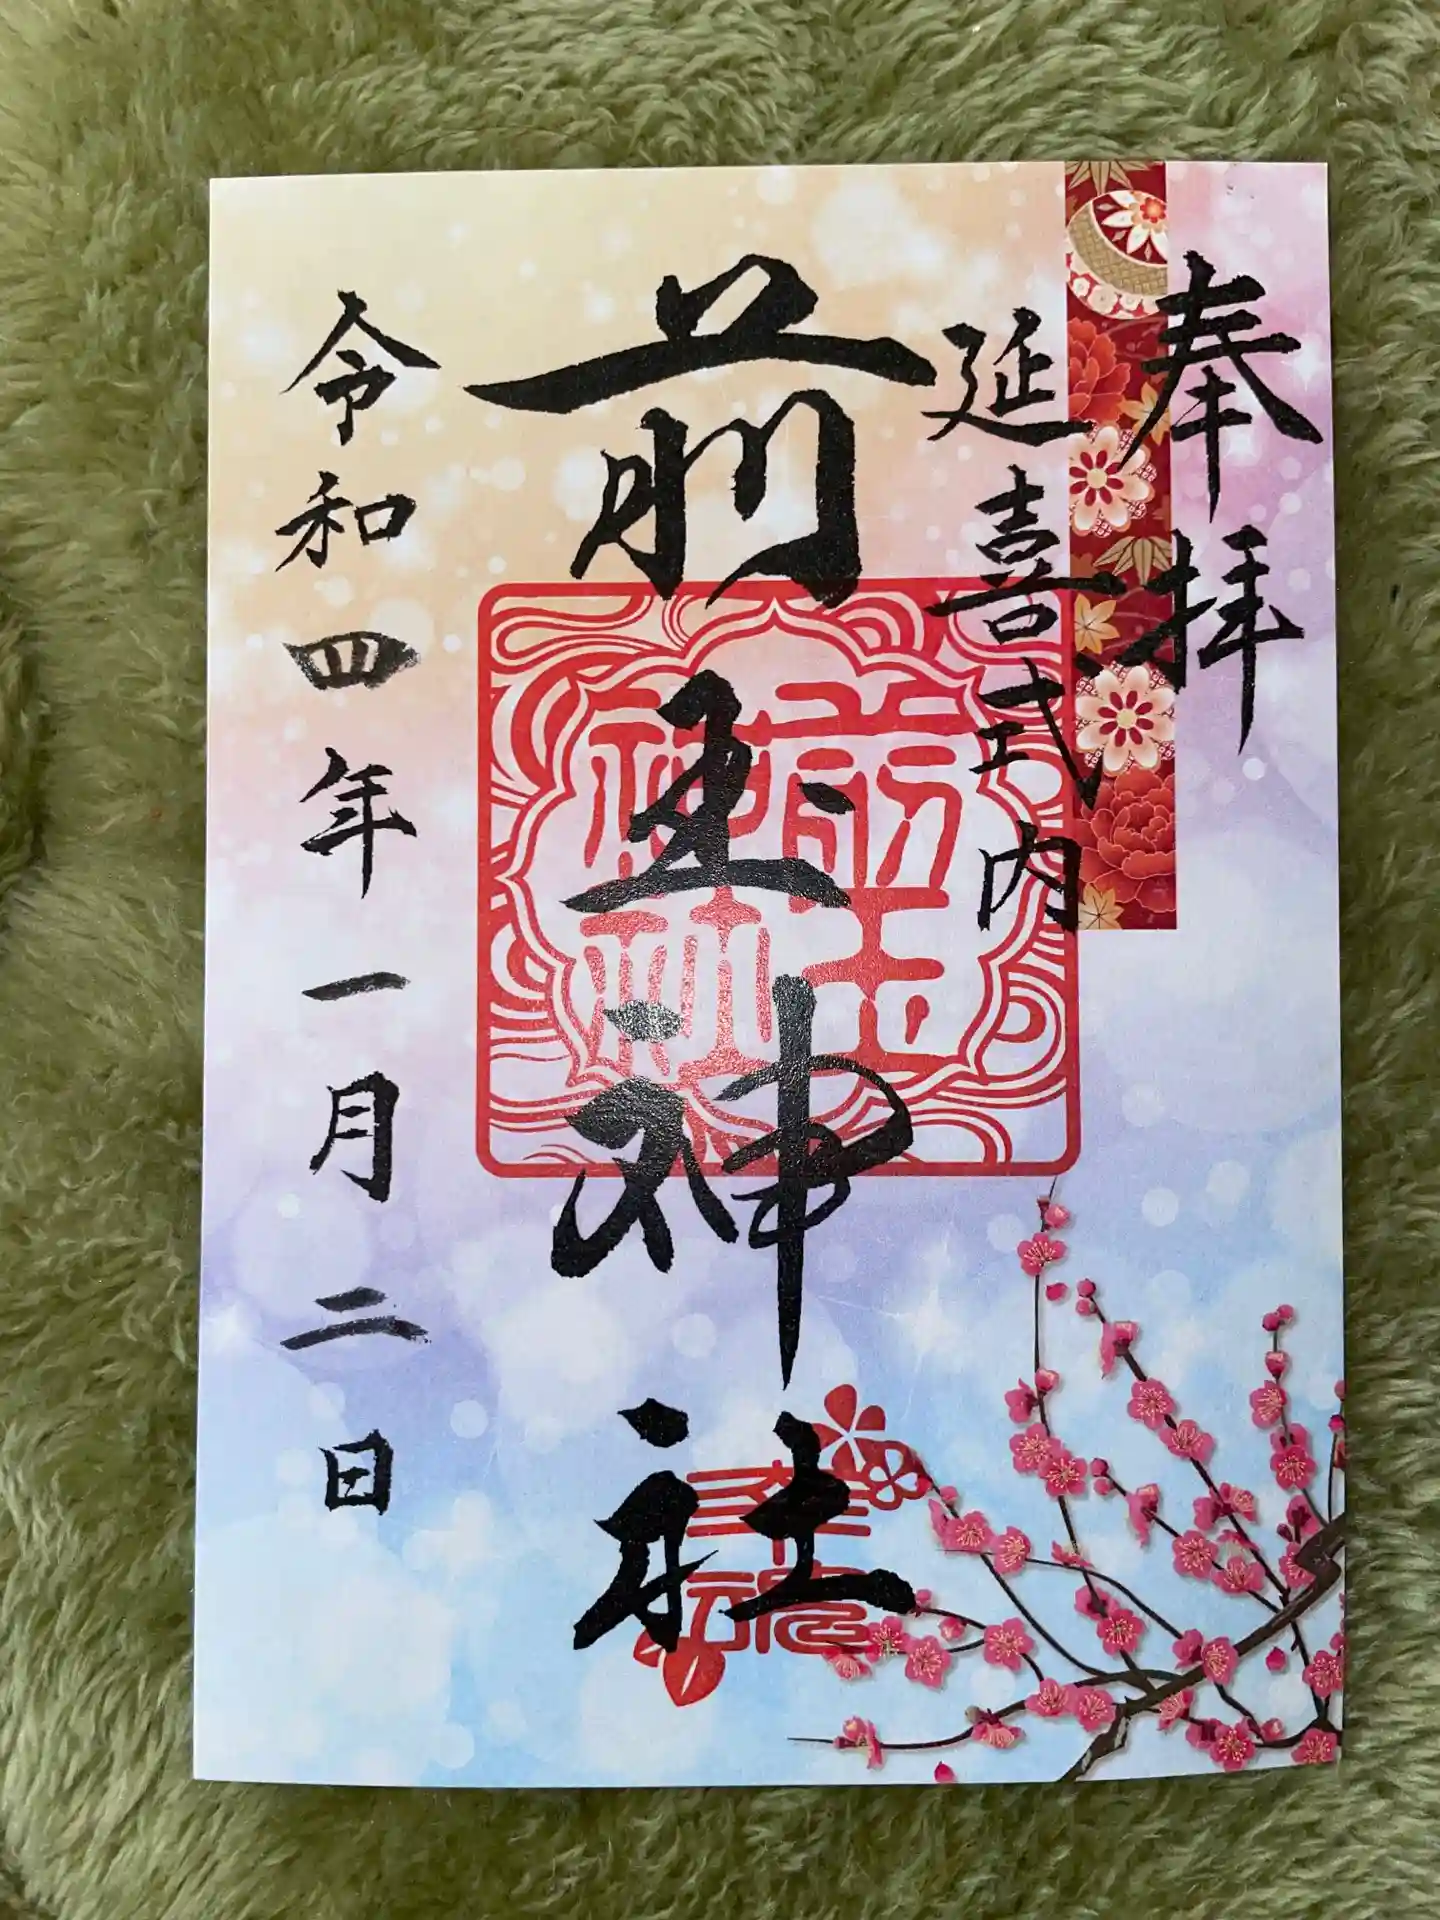 奉拝
延喜式内
前玉神社
令和四年一月二日
前玉
神社
幸魂